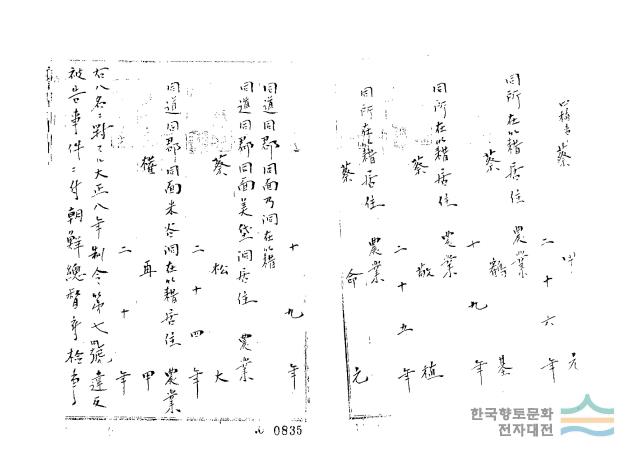 蔡 元
二十六年
同所在籍居住 農業
蔡 鶴基
十九年
同所在籍居住 農業
蔡 敬植
二十五年
同所在籍居住 農業
蔡 命元
十九年
同道同郡同面乃洞在籍
同道同郡同面美垈洞居住 農業
蔡 松大
二十四年
同道同郡同面米谷洞在籍居住 農業
權 再甲
二十年
右八名ニ對スル大正八年制令第七號違反
被告事件ニ付朝鮮總督府檢事
0835
한국향토문화
전자대전